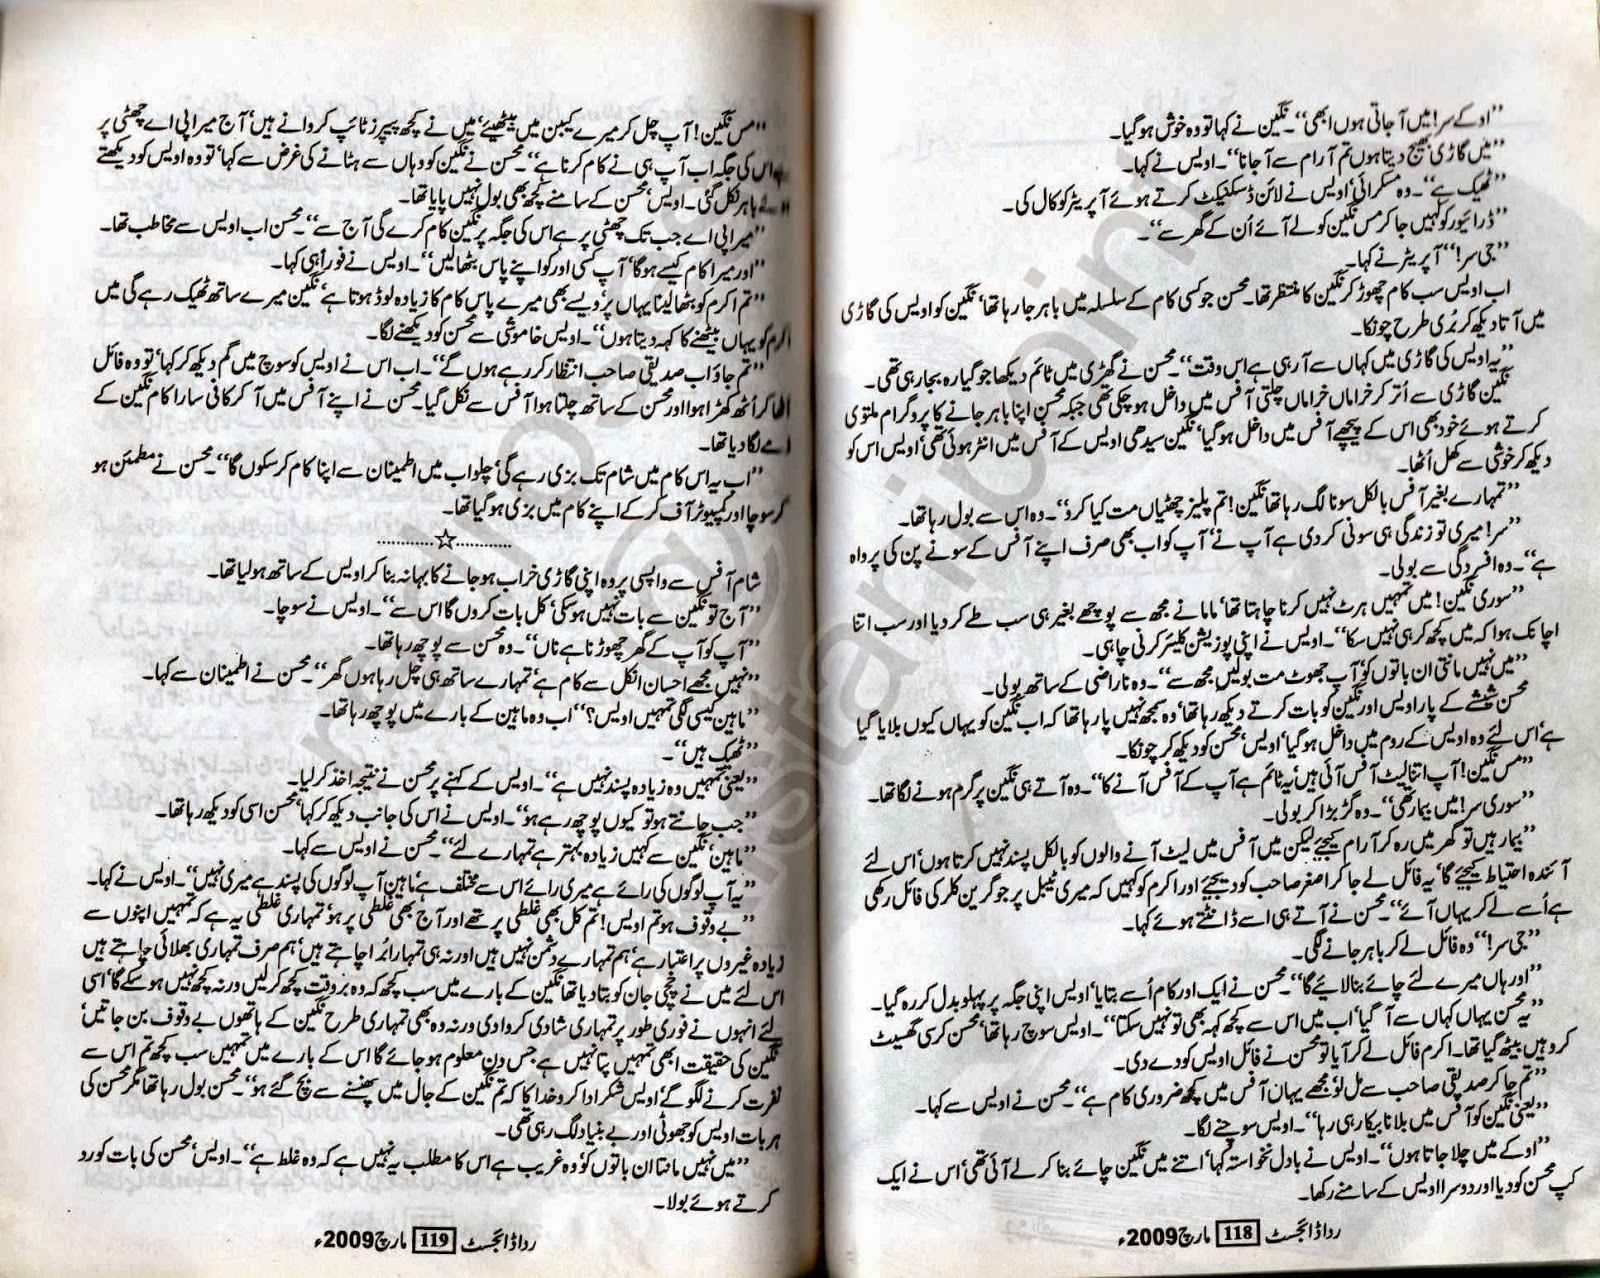 ’’اوکے سر! میں آ جاتی ہوں ابھی‘‘۔ نگین نے کہا تو وہ خوش ہو گیا۔
’’میں گاڑی بھیج دیتا ہوں تم آرام سے آ جانا‘‘۔ اویس نے کہا۔
’’ٹھیک ہے‘‘۔ وہ مسکرائی‘ اویس نے لائن ڈسکنیکٹ کرتے ہوئے آپریٹر کو کال کی۔
’’ڈرائیور کو کہیں جا کر مس نگین کو لے آئے اُن کے گھر سے‘‘۔
’’جی سر!‘‘ آپریٹر نے کہا۔
اب اویس سب کام چھوڑ کر نگین کا منتظر تھا۔ محسن جو کسی کام کے سلسلہ میں باہر جا رہا تھا‘ نگین کو اویس کی گاڑی
میں آتا دیکھ کر بُری طرح چونکا۔
’’یہ اویس کی گاڑی میں کہاں سے آ رہی ہے اس وقت‘‘۔ محسن نے گھڑی میں ٹائم دیکھا جو گیارہ بجا رہی تھی۔
نگین گاڑی سے اُتر کر خراماں خراماں چلتی آفس میں داخل ہو چکی تھی جبکہ محسن اپنا باہر جانے کا پروگرام ملتوی
کرتے ہوئے خود بھی اس کے پیچھے آفس میں داخل ہو گیا‘ نگین سیدھی اویس کے آفس میں انٹر ہوئی تھی‘ اویس اس کو
دیکھ کر خوشی سے کھل اُٹھا۔
’’تمہارے بغیر آفس بالکل سونا لگ رہا تھا نگین! تم پلیز چھٹیاں مت کیا کرو‘‘۔ وہ اس سے بول رہا تھا۔
’’سر! میری تو زندگی ہی سونی کر دی ہے آپ نے‘ آپ کو اب بھی صرف اپنے آفس کے سونے پن کی پرواہ
ہے‘‘۔ وہ افسردگی سے بولی۔
’’سوری نگین! میں تمہیں ہرٹ نہیں کرنا چاہتا تھا‘ ماما نے مجھ سے پوچھے بغیر ہی سب طے کر دیا اور سب اتنا
اچانک ہوا کہ میں کچھ کر ہی نہیں سکا‘‘۔ اویس نے اپنی پوزیشن کلیئر کرنی چاہی۔
’’میں نہیں مانتی ان باتوں کو‘ آپ جھوٹ مت بولیں مجھ سے‘‘۔ وہ ناراضی کے ساتھ بولی۔
محسن شیشے کے پار اویس اور نگین کو بات کرتے دیکھ رہا تھا‘ وہ سمجھ نہیں پا رہا تھا کہ اب نگین کو یہاں کیوں بلایا گیا
ہے‘ اس لئے وہ اویس کے روم میں داخل ہو گیا‘ اویس‘ محسن کو دیکھ کر چونکا۔
’’مس نگین! آپ اتنا لیٹ آفس آئی ہیں‘ یہ ٹائم ہے آپ کے آفس آنے کا‘‘۔ وہ آتے ہی نگین پر گرم ہونے لگا تھا۔
’’سوری سر! میں بیمار تھی‘‘۔ وہ گڑبڑا کر بولی۔
’’بیمار ہیں تو گھر میں رہ کر آرام کیجیے لیکن میں آفس میں لیٹ آنے والوں کو بالکل پسند نہیں کرتا ہوں‘ اس لئے
آئندہ احتیاط کیجیے گا‘ یہ فائل لے جا کر اصغر صاحب کو دیجیے اور اکرم کو کہیں کہ میری ٹیبل پر جو گرین کلر کی فائل رکھی
ہے اُسے لے کر یہاں آئے‘‘۔ محسن نے آتے ہی اسے ڈانٹتے ہوئے کہا۔
’’جی سر!‘‘ وہ فائل لے کر باہر جانے لگی۔
’’اور ہاں میرے لئے چائے بنا لائیے گا‘‘۔ محسن نے ایک اور کام اُسے بتایا‘ اویس اپنی جگہ پر پہلو بدل کر رہ گیا۔
’’یہ محسن یہاں کہاں سے آ گیا‘ اب میں اس سے کچھ کہہ بھی تو نہیں سکتا‘‘۔ اویس سوچ رہا تھا‘ محسن کرسی گھسیٹ
کر وہیں بیٹھ گیا تھا۔ اکرم فائل لے کر آیا تو محسن نے فائل اویس کو دے دی۔
’’تم جا کر صدیقی صاحب سے مل لو‘ مجھے یہاں آفس میں کچھ ضروری کام ہے‘‘۔ محسن نے اویس سے کہا۔
’’یعنی نگین کو آفس میں بلانا بیکار ہی رہا‘‘۔ اویس سوچنے لگا۔
’’اوکے میں چلا جاتا ہوں‘‘۔ اویس نے بادل نخواستہ کہا‘ اتنے میں نگین چائے بنا کر لے آئی تھی‘ اس نے ایک
کپ محسن کو دیا اور دوسرا اویس کے سامنے رکھا۔
ردا ڈائجسٹ 118 مارچ 2009ء
’’مس نگین! آپ چل کر میرے کیبن میں بیٹھیئے‘ میں نے کچھ پیپرز ٹائپ کروانے ہیں‘ آج میرا پی اے چھٹی پر
اس کی جگہ اب آپ ہی نے کام کرنا ہے‘‘۔ محسن نے نگین کو وہاں سے ہٹانے کی غرض سے کہا‘ تو وہ اویس کو دیکھتے
باہر نکل گئی۔ اویس‘ محسن کے سامنے کچھ بھی بول نہیں پایا تھا۔
’’میرا پی اے جب تک چھٹی پر ہے اس کی جگہ پر نگین کام کرے گی آج سے‘‘۔ محسن اب اویس سے مخاطب تھا۔
’’اور میرا کام کیسے ہو گا‘ آپ کسی اور کو اپنے پاس بٹھا لیں‘‘۔ اویس نے فوراً ہی کہا۔
’’تم اکرم کو بٹھا لینا یہاں پر ویسے بھی میرے پاس کام کا زیادہ لوڈ ہوتا ہے‘ نگین میرے ساتھ ٹھیک رہے گی میں
اکرم کو یہاں بیٹھنے کا کہہ دیتا ہوں‘‘۔ اویس خاموشی سے محسن کو دیکھنے لگا۔
’’تم جاؤ اب صدیقی صاحب انتظار کر رہے ہوں گے‘‘۔ اب اس نے اویس کو سوچ میں گم دیکھ کر کہا‘ تو وہ فائل
اٹھا کر اُٹھ کھڑا ہوا اور محسن کے ساتھ چلتا ہوا آفس سے نکل گیا۔ محسن نے اپنے آفس میں آ کر کافی سارا کام نگین کے
ذمے لگا دیا تھا۔
’’اب یہ اس کام میں شام تک بزی رہے گی‘ چلو اب میں اطمینان سے اپنا کام کر سکوں گا‘‘۔ محسن نے مطمئن ہو
کر سوچا اور کمپیوٹر آف کر کے اپنے کام میں بزی ہو گیا تھا۔
..........☆..........
شام آفس سے واپسی پر وہ اپنی گاڑی خراب ہو جانے کا بہانہ بنا کر اویس کے ساتھ ہو لیا تھا۔
’’آج تو نگین سے بات نہیں ہو سکی‘ کل بات کروں گا اس سے‘‘۔ اویس نے سوچا۔
’’آپ کو آپ کے گھر چھوڑنا ہے ناں‘‘۔ وہ محسن سے پوچھ رہا تھا۔
’’نہیں مجھے احسان انکل سے کام ہے‘ تمہارے ساتھ ہی چل رہا ہوں گھر‘‘۔ محسن نے اطمینان سے کہا۔
’’ماہین کیسی لگی تمہیں اویس؟‘‘ اب وہ ماہین کے بارے میں پوچھ رہا تھا۔
’’ٹھیک ہیں‘‘۔
’’یعنی تمہیں وہ زیادہ پسند نہیں ہے‘‘۔ اویس کے کہنے پر محسن نے نتیجہ اخذ کر لیا۔
’’جب جانتے ہو تو کیوں پوچھ رہے ہو‘‘۔ اویس نے اس کی جانب دیکھ کر کہا‘ محسن اسی کو دیکھ رہا تھا۔
’’ماہین‘ نگین سے کہیں زیادہ بہتر ہے تمہارے لئے‘‘۔ محسن نے اویس سے کہا۔
’’یہ آپ لوگوں کی رائے ہے میری رائے اس سے مختلف ہے‘ ماہین آپ لوگوں کی پسند ہے میری نہیں‘‘۔ اویس نے کہا۔
’’بے وقوف ہو تم اویس! تم کل بھی غلطی پر تھے اور آج بھی غلطی پر ہو‘ تمہاری غلطی یہ ہے کہ تمہیں اپنوں سے
زیادہ غیروں پر اعتبار ہے‘ ہم تمہارے دشمن نہیں ہیں اور نہ ہی تمہارا بُرا چاہتے ہیں‘ ہم صرف تمہاری بھلائی چاہتے ہیں
اس لئے میں نے چچی جان کو بتا دیا تھا نگین کے بارے میں سب کچھ کہ وہ بروقت کچھ کر لیں ورنہ کچھ نہیں ہو سکے گا‘ اسی
لئے انہوں نے فوری طور پر تمہاری شادی کروا دی ورنہ وہ بھی تمہاری طرح نگین کے ہاتھوں بے وقوف بن جاتیں‘
نگین کی حقیقت ابھی تمہیں پتا نہیں ہے جس دن معلوم ہو جائے گا اس کے بارے میں تمہیں سب کچھ تم اس سے
نفرت کرنے لگو گے‘ اویس شکر ادا کرو خدا کا کہ تم نگین کے جال میں پھنسنے سے بچ گئے ہو‘‘۔ محسن بول رہا تھا مگر محسن کی
ہر بات اویس کو جھوٹی اور بے بنیاد لگ رہی تھی۔
’’میں نہیں مانتا ان باتوں کو‘ وہ غریب ہے اس کا مطلب یہ نہیں ہے کہ وہ غلط ہے‘‘۔ اویس‘ محسن کی بات کو رد
کرتے ہوئے بولا۔
ردا ڈائجسٹ 119 مارچ 2009ء